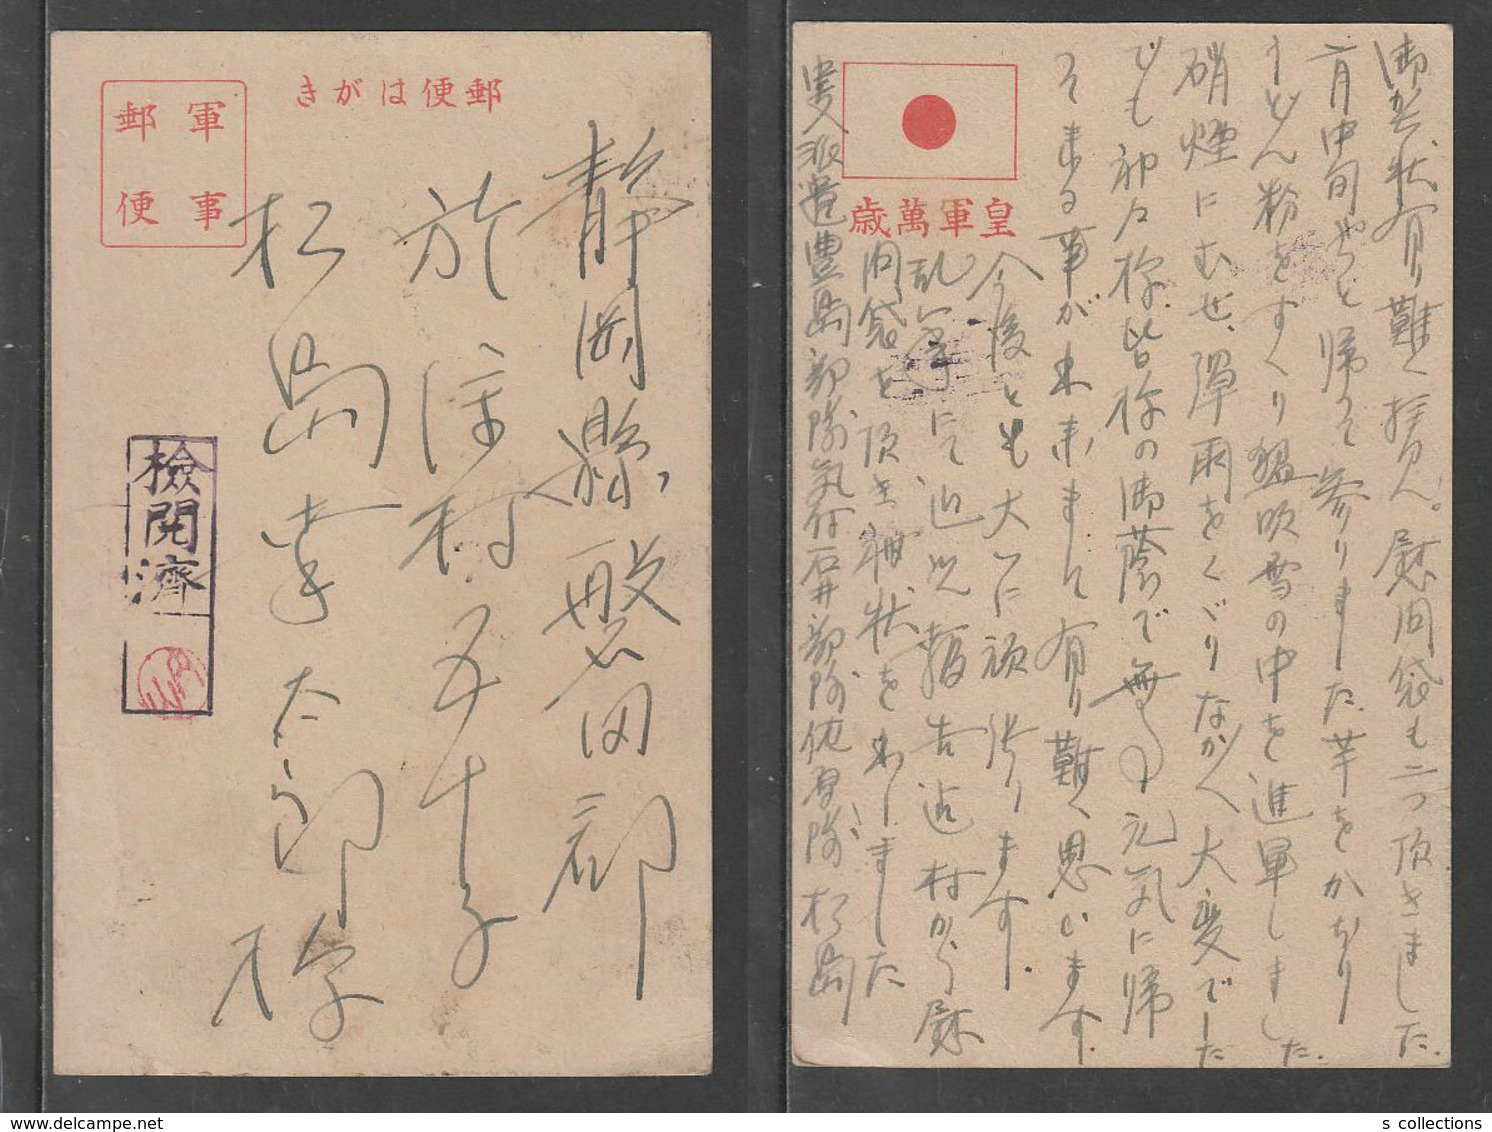 きがは便郵
軍事
郵便
静岡縣磐田郡
於保村五十子
松島幸太郎様
検閲済
皇軍萬歳
御書状有り難く拝見。慰問袋も二つ頂きました。
二月中旬やっと帰って参りました。芋をかぢり
うどん粉をすくり猛吹雪の中を進軍しました。
硝煙にむせ、弾雨をくぐりながへ大変でした
でも神々様皆様の御蔭で無事元気に帰
って来る事が出来まして有り難く思います。
今後とも大いに頑張ります。
乱筆にて近況報告迄 村から慰
問袋を頂き礼状を出しました
中支派遣豊島部隊気付石井部隊佐有隊 松島
s collections